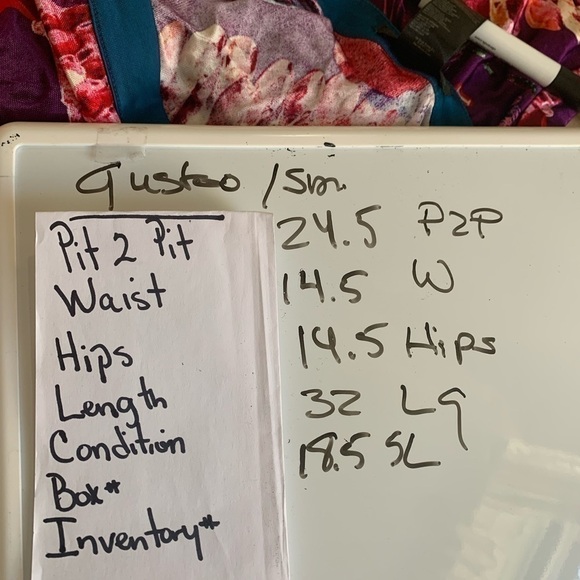 Gustoo / Sm
Pit 2 Pit 24.5 P2P
Waist 14.5 W
Hips 14.5 Hips
Length 32 Lg
Condition 18.5 SL
Box*
Inventory*